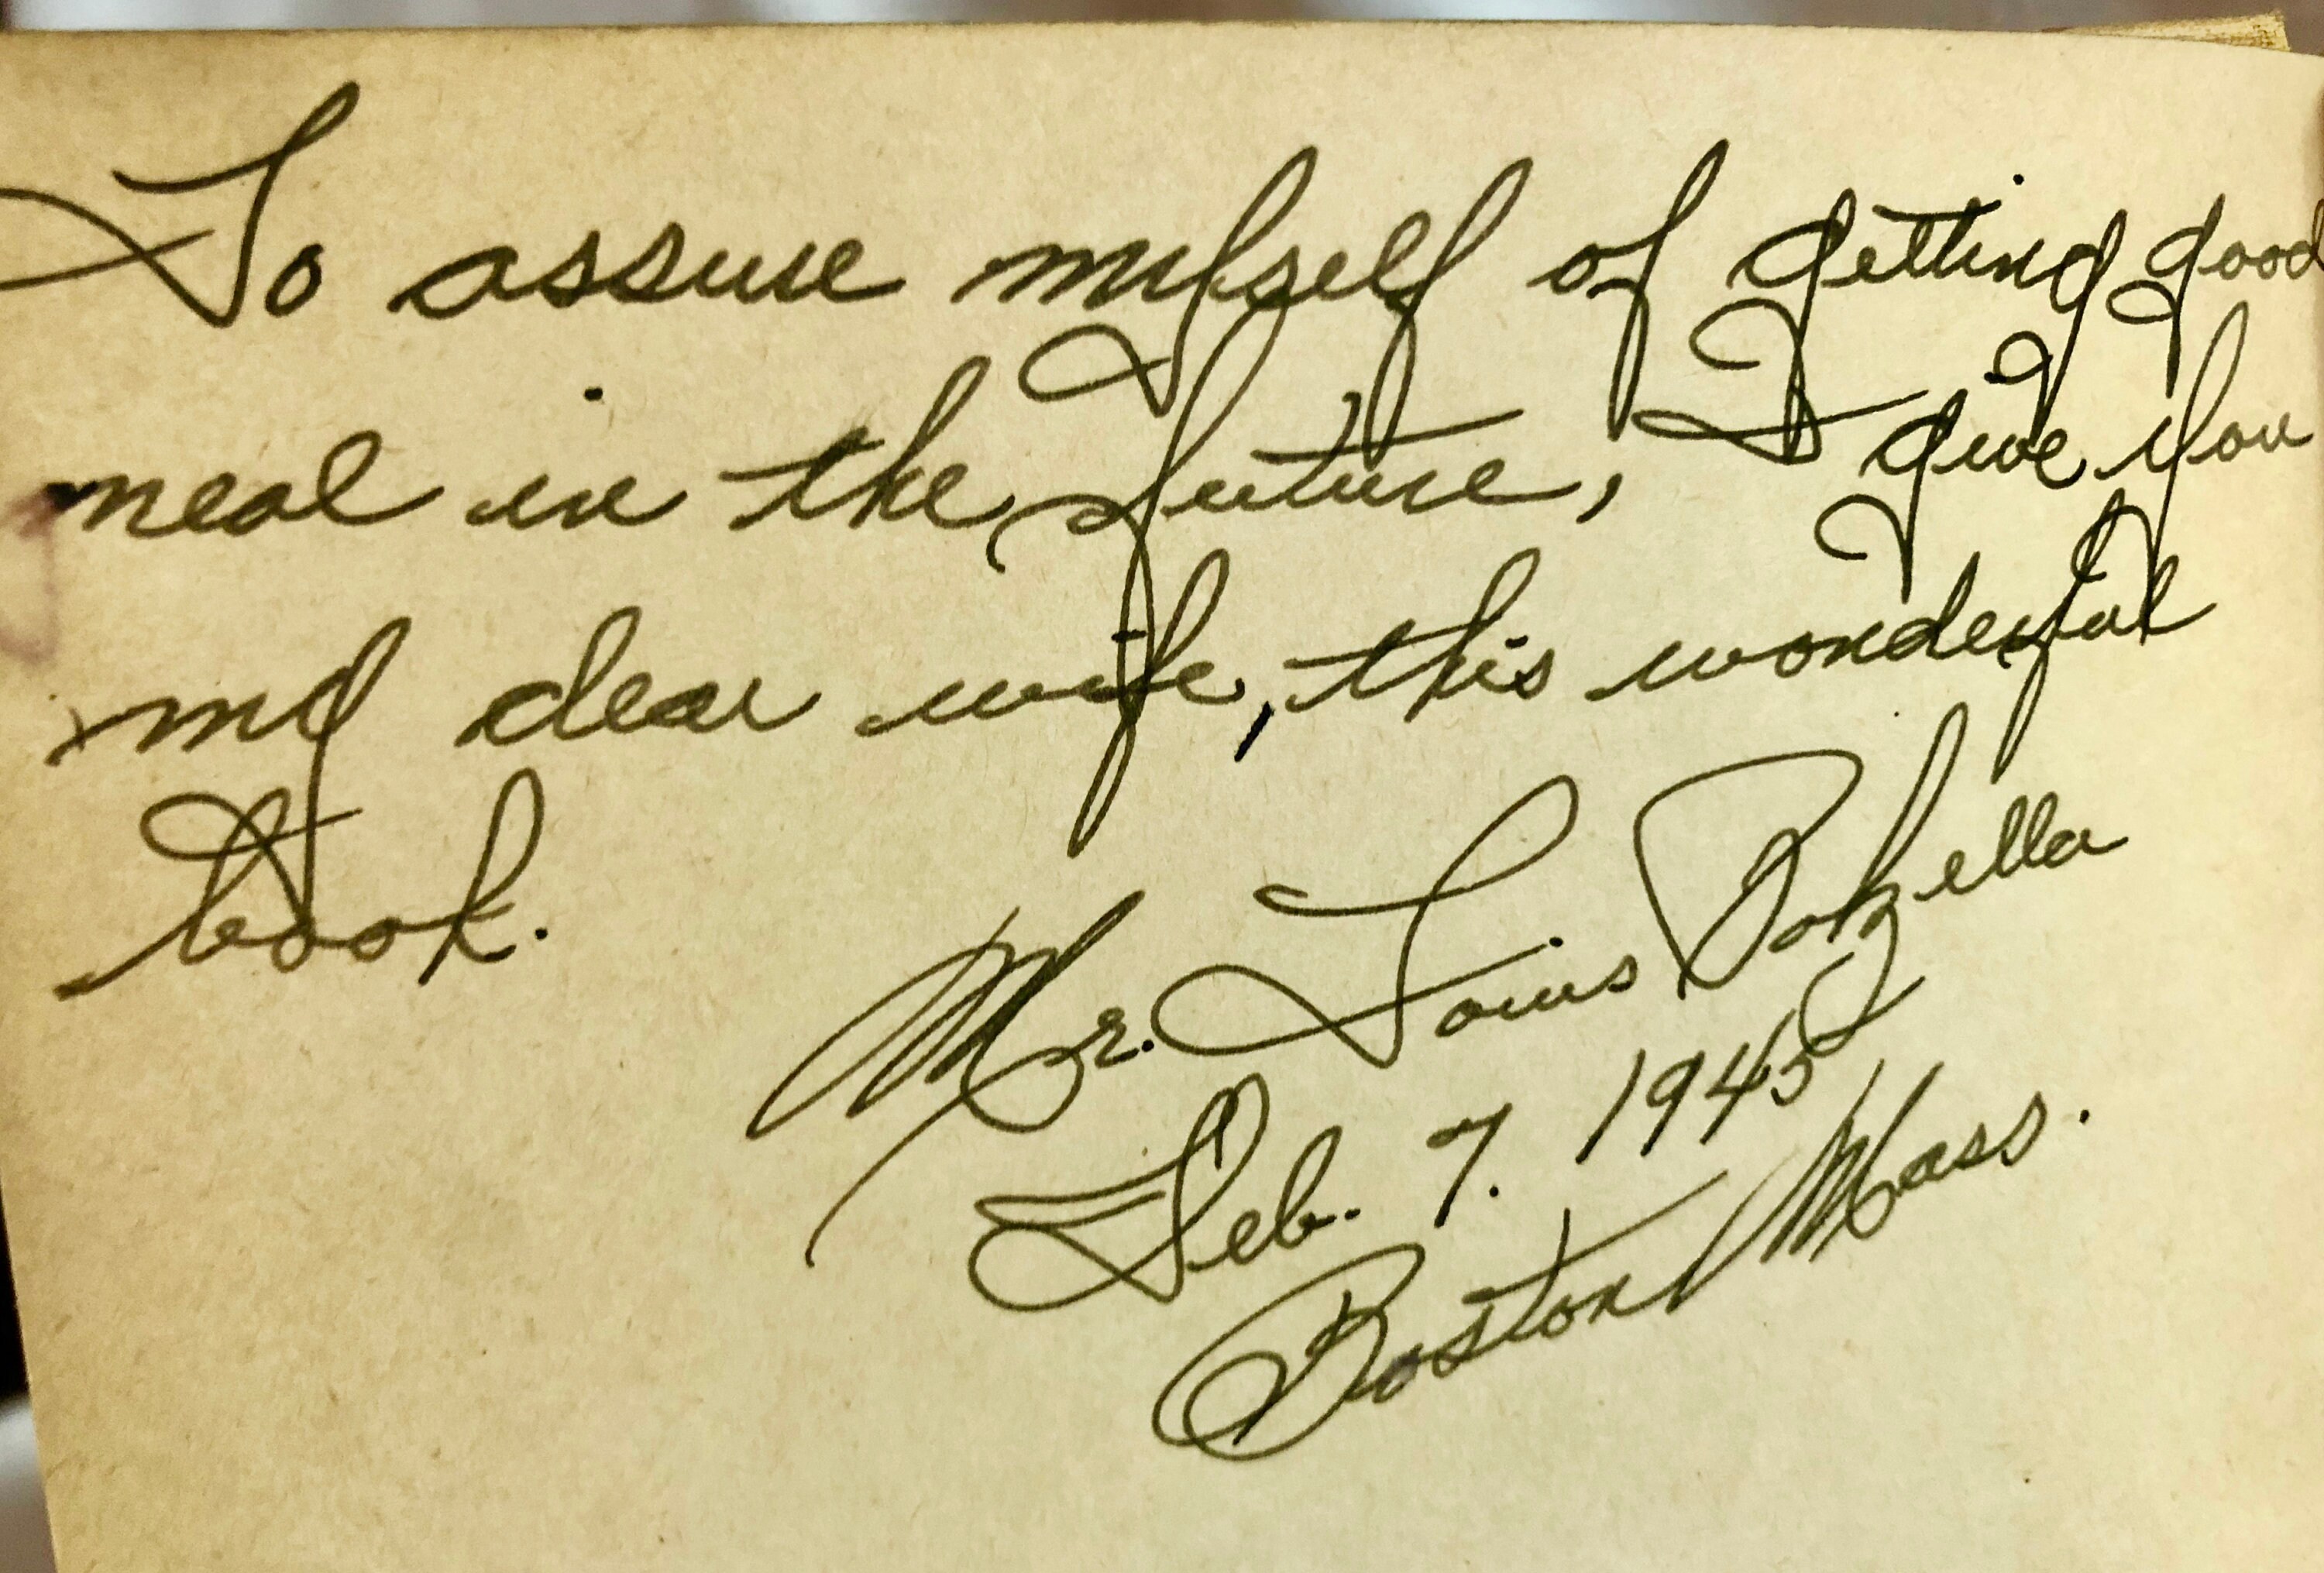 To assure myself of getting good
meal in the future, I give you
my dear wife, this wonderful
book.
Mr. Louis
Feb. 7. 1945
Boston Mass.